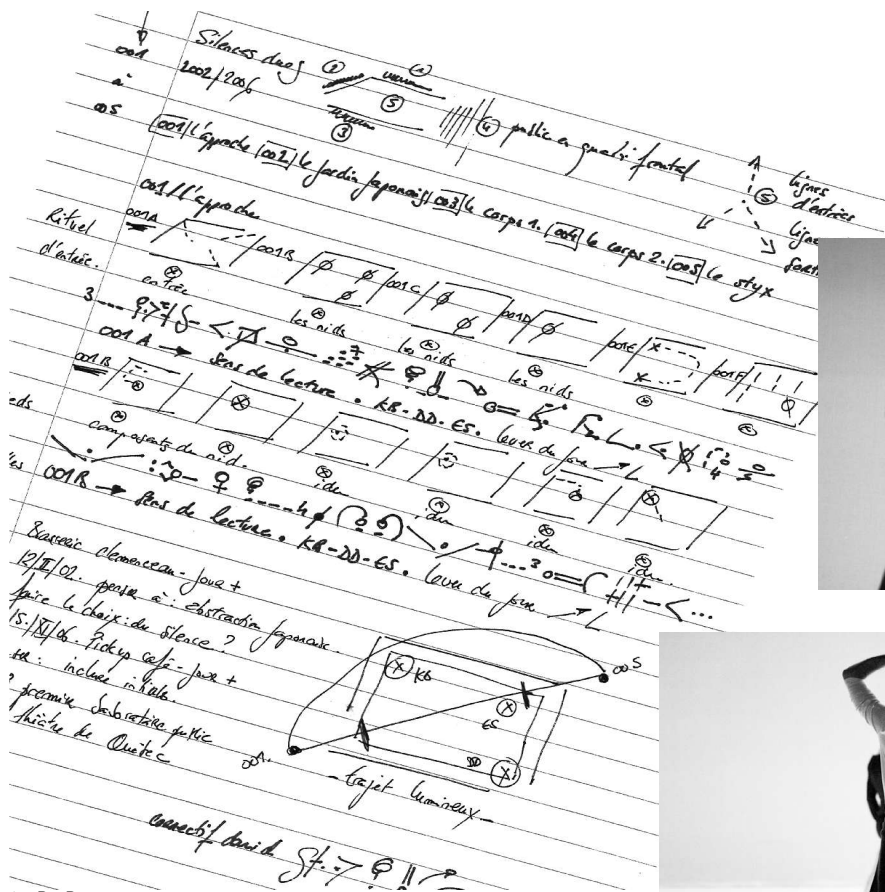 001
à
005
Silences duos
2002/2006
② ① ⑤ ③ ④ public en quadri frontal
⑤ lignes d'entrées
001/l'approche 002/le jardin japonais/003/le corps 1. 004/le corps 2. 005/le styx
001/l'approche
Rituel d'entrée.
001A 001B 001C 001D 001E 001F
entrée les nids les nids les nids
001A → sens de lecture. KB-DD-ES. lever du jour → L
001B
composants du nid. idem idem idem idem.
001B → sens de lecture. KB-DD-ES. lever du jour → L
Brasserie Clemenceau-jour +
12/II/02. penser à: abstraction japonaise.
faire le choix: du silence?
15./XI/06. Pickup café-jour +
: inclure initiale.
première laboratoire public
théâtre de Québec
KB
ES
DD
001.
005
-trajet lumineux-
correctif david